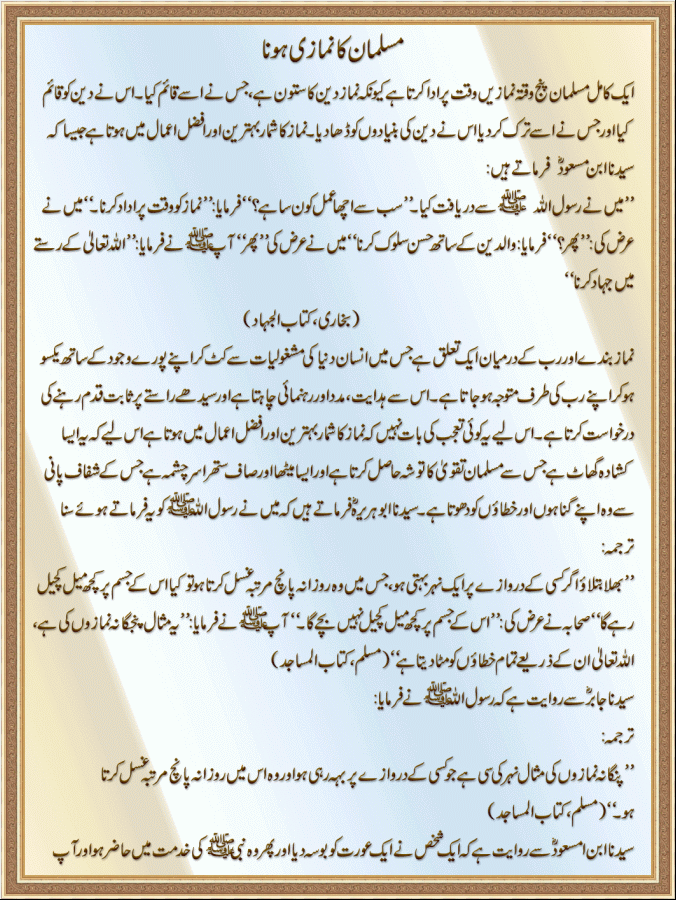 مسلمان کا نمازی ہونا
ایک کامل مسلمان پنج وقتہ نمازیں وقت پر ادا کرتا ہے کیونکہ نماز دین کا ستون ہے، جس نے اسے قائم کیا۔ اس نے دین کو قائم
کیا اور جس نے اسے ترک کر دیا اس نے دین کی بنیادوں کو ڈھا دیا۔ نماز کا شمار بہترین اور افضل اعمال میں ہوتا ہے جیسا کہ
سیدنا ابن مسعودؓ فرماتے ہیں:
”میں نے رسول اللہ ﷺ سے دریافت کیا۔” سب سے اچھا عمل کون سا ہے؟“ فرمایا:”نماز کو وقت پر اداد کرنا۔“ میں نے
عرض کی:”پھر؟“ فرمایا: والدین کے ساتھ حسن سلوک کرنا“ میں نے عرض کی ”پھر“ آپ ﷺ نے فرمایا:”اللہ تعالیٰ کے رستے
میں جہاد کرنا“
(بخاری، کتاب الجہاد)
نماز بندے اور رب کے درمیان ایک تعلق ہے جس میں انسان دنیا کی مشغولیات سے کٹ کر اپنے پورے وجود کے ساتھ یکسو
ہو کر اپنے رب کی طرف متوجہ ہو جاتا ہے۔ اس سے ہدایت، مدد اور رہنمائی چاہتا ہے اور سیدھے راستے پر ثابت قدم رہنے کی
درخواست کرتا ہے۔ اس لیے یہ کوئی تعجب کی بات نہیں کہ نماز کا شمار بہترین اور افضل اعمال میں ہوتا ہے اس لیے کہ یہ ایسا
کشادہ گھاٹ ہے جس سے مسلمان تقویٰ کا توشہ حاصل کرتا ہے اور ایسا میٹھا اور صاف ستھرا سرچشمہ ہے جس کے شفاف پانی
سے وہ اپنے گناہوں اور خطاؤں کو دھوتا ہے۔ سیدنا ابو ہریرہؓ فرماتے ہیں کہ میں نے رسول اللہ ﷺ کو یہ فرماتے ہوئے سنا
ترجمہ:
”بھلا بتلاؤ اگر کسی کے دروازے پر ایک نہر بہتی ہو، جس میں وہ روزانہ پانچ مرتبہ غسل کرتا ہو تو کیا اس کے جسم پر کچھ میل کچیل
رہے گا“ صحابہ نے عرض کی:”اس کے جسم پر کچھ میل کچیل نہیں بچے گا۔“ آپ ﷺ نے فرمایا:”یہ مثال پنجگانہ نمازوں کی ہے،
اللہ تعالیٰ ان کے ذریعے تمام خطاؤں کو مٹا دیتا ہے“ (مسلم، کتاب المساجد)
سیدنا جابرؓ سے روایت ہے کہ رسول اللہ ﷺ نے فرمایا:
ترجمہ:
”پنگانہ نمازوں کی مثال نہر کی سی ہے جو کسی کے دروازے پر بہہ رہی ہو اور وہ اس میں روزانہ پانچ مرتبہ غسل کرتا
ہو۔“ (مسلم، کتاب المساجد)
سیدنا ابن امسعودؓ سے روایت ہے کہ ایک شخص نے ایک عورت کو بوسہ دیا اور پھر وہ نبی ﷺ کی خدمت میں حاضر ہو اور آپ